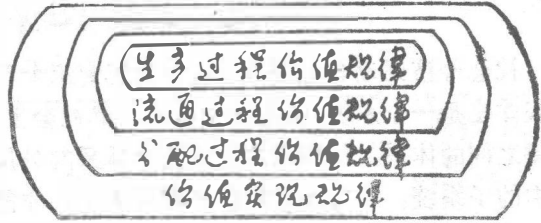 生产过程价值规律
流通过程价值规律
分配过程价值规律
价值实现规律